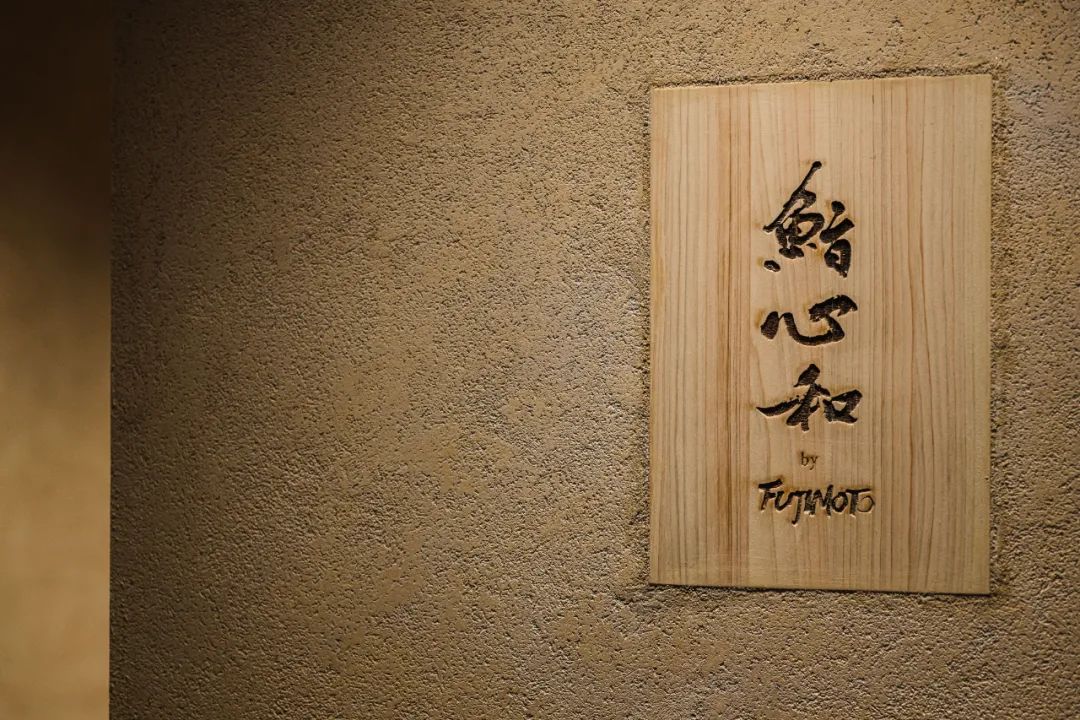 鮨心和
by
FUJIMOTO